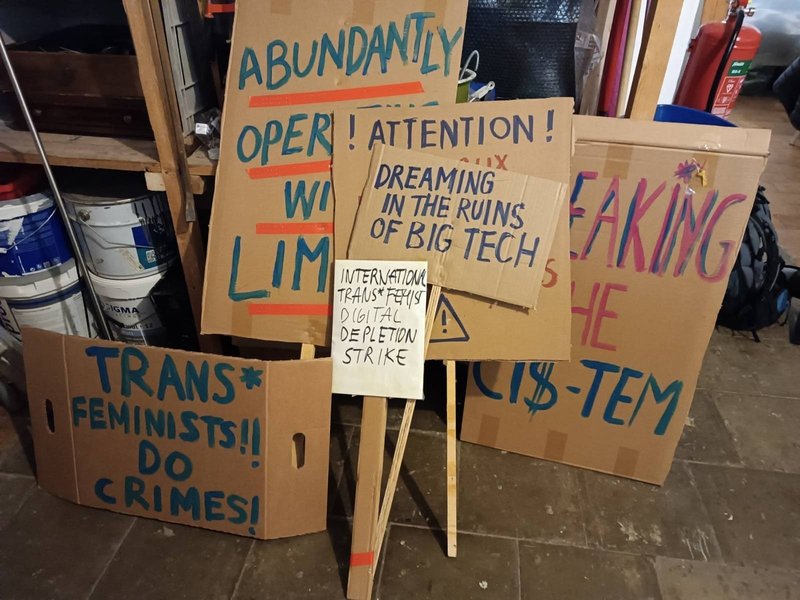 ABUNDANTLY
LIM
! ATTENTION !
DREAMING
IN THE RUINS
OF BIG TECH
INTERNATIONAL
TRANS*FEMIST
DIGITAL
DEPLETION
STRIKE
EAKING
HE
CI$-TEM
TRANS*
FEMINISTS!!
DO
CRIMES!
SIGMA